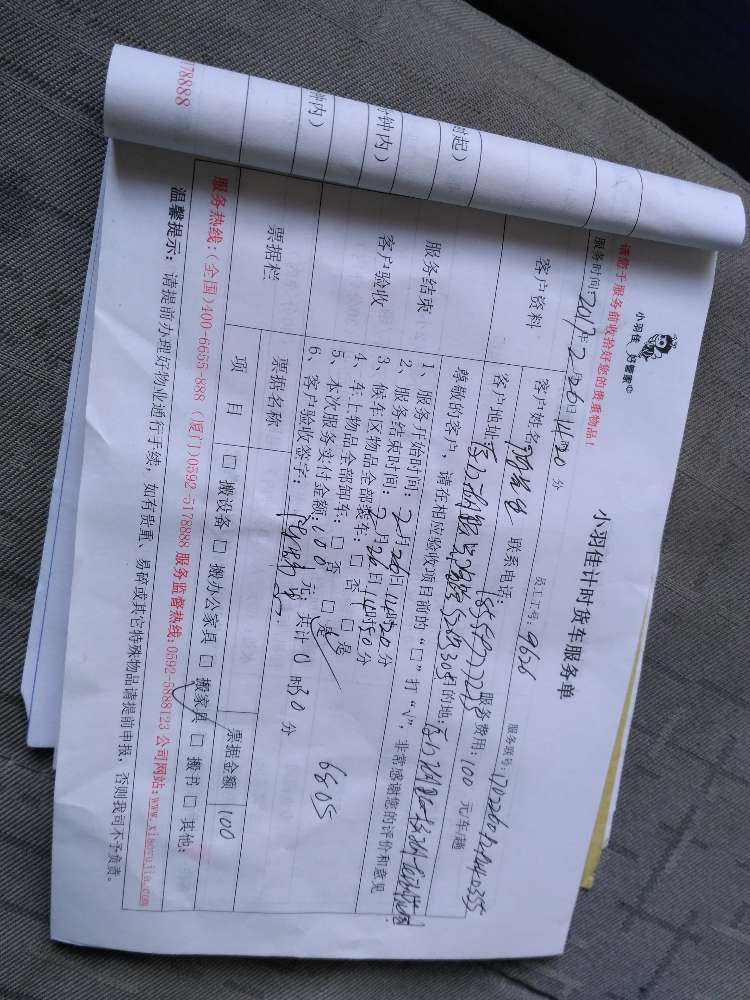 178888
钟内)
钟内)
时起)
小羽佳 好管家
小羽佳计时货车服务单
请您于服务前收拾好您的贵重物品!
服务时间:2017年2月26日14时20分
员工工号:9626
服务账号:
客户资料
客户姓名
联系电话:
服务费用:100元/车/趟
客户地址:
目的地:
服务结束
客户验收
尊敬的客户,请在相应验收项目前的“□”打“√”,非常感谢您的评价和意见
1、服务开始时间:2月26日14时20分
2、服务结束时间:2月26日14时50分
3、候车区物品全部装车:□否 □是
4、车上物品全部卸车:□否 □是
5、本次服务实付金额:100元;共计0时30分
6、客户验收签字:
6805
票据栏
票据名称
票据金额
100
项目
□搬设备 □搬办公家具 □搬家具 □搬书 □其他:
服务热线:(全国)400-6655-888 (厦门)0592-5178888 服务监督热线:0592-5888123 公司网站:www.xiaoyujia.com
温馨提示:请提前办理好物业通行手续,如有贵重、易碎或其它特殊物品请提前申报,否则我司不予负责。